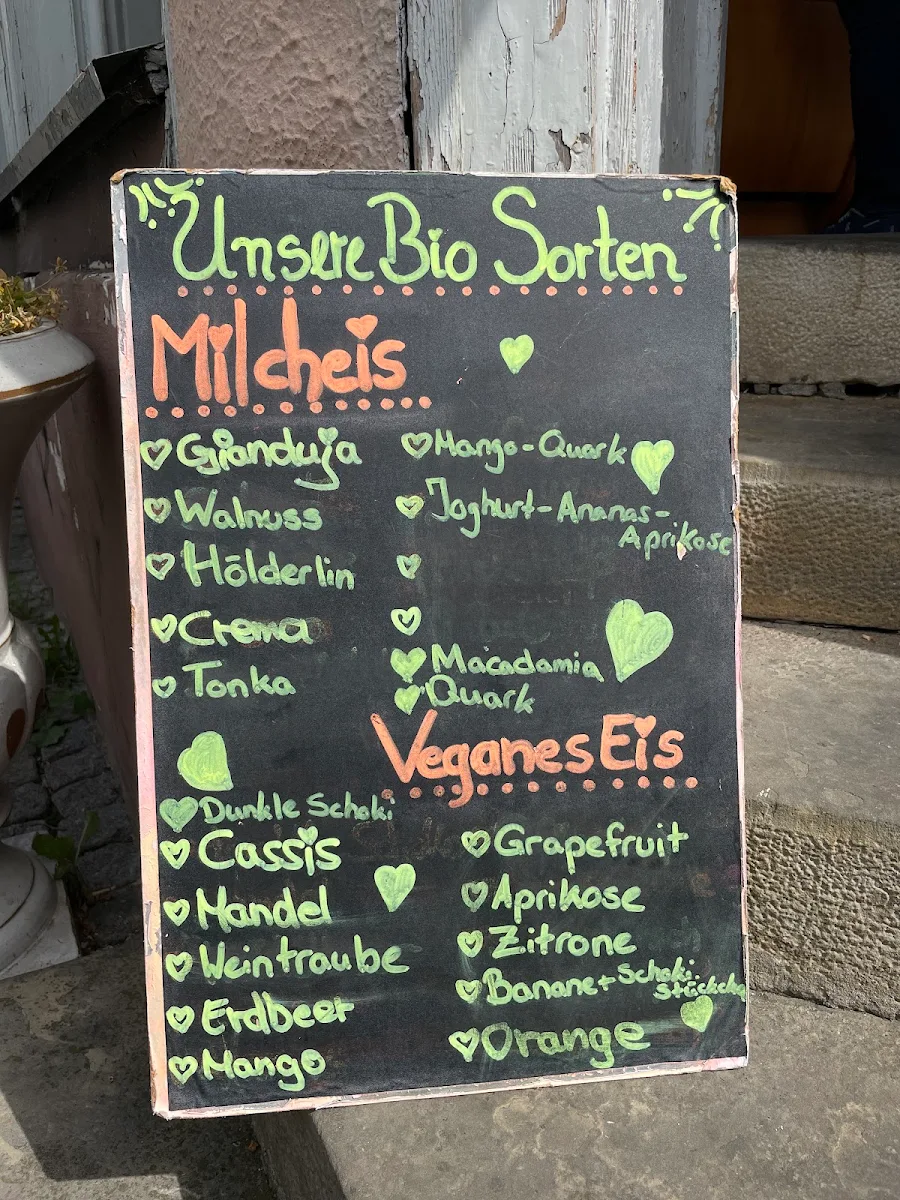 Unsere Bio Sorten
Milcheis
Gianduja
Walnuss
Hölderlin
Crema
Tonka
Mango-Quark
Joghurt-Ananas-
Aprikose
Macadamia
Quark
Veganes Eis
Dunkle Schoki
Cassis
Mandel
Weintraube
Erdbeer
Mango
Grapefruit
Aprikose
Zitrone
Banane + Schoki
Stückchen
Orange